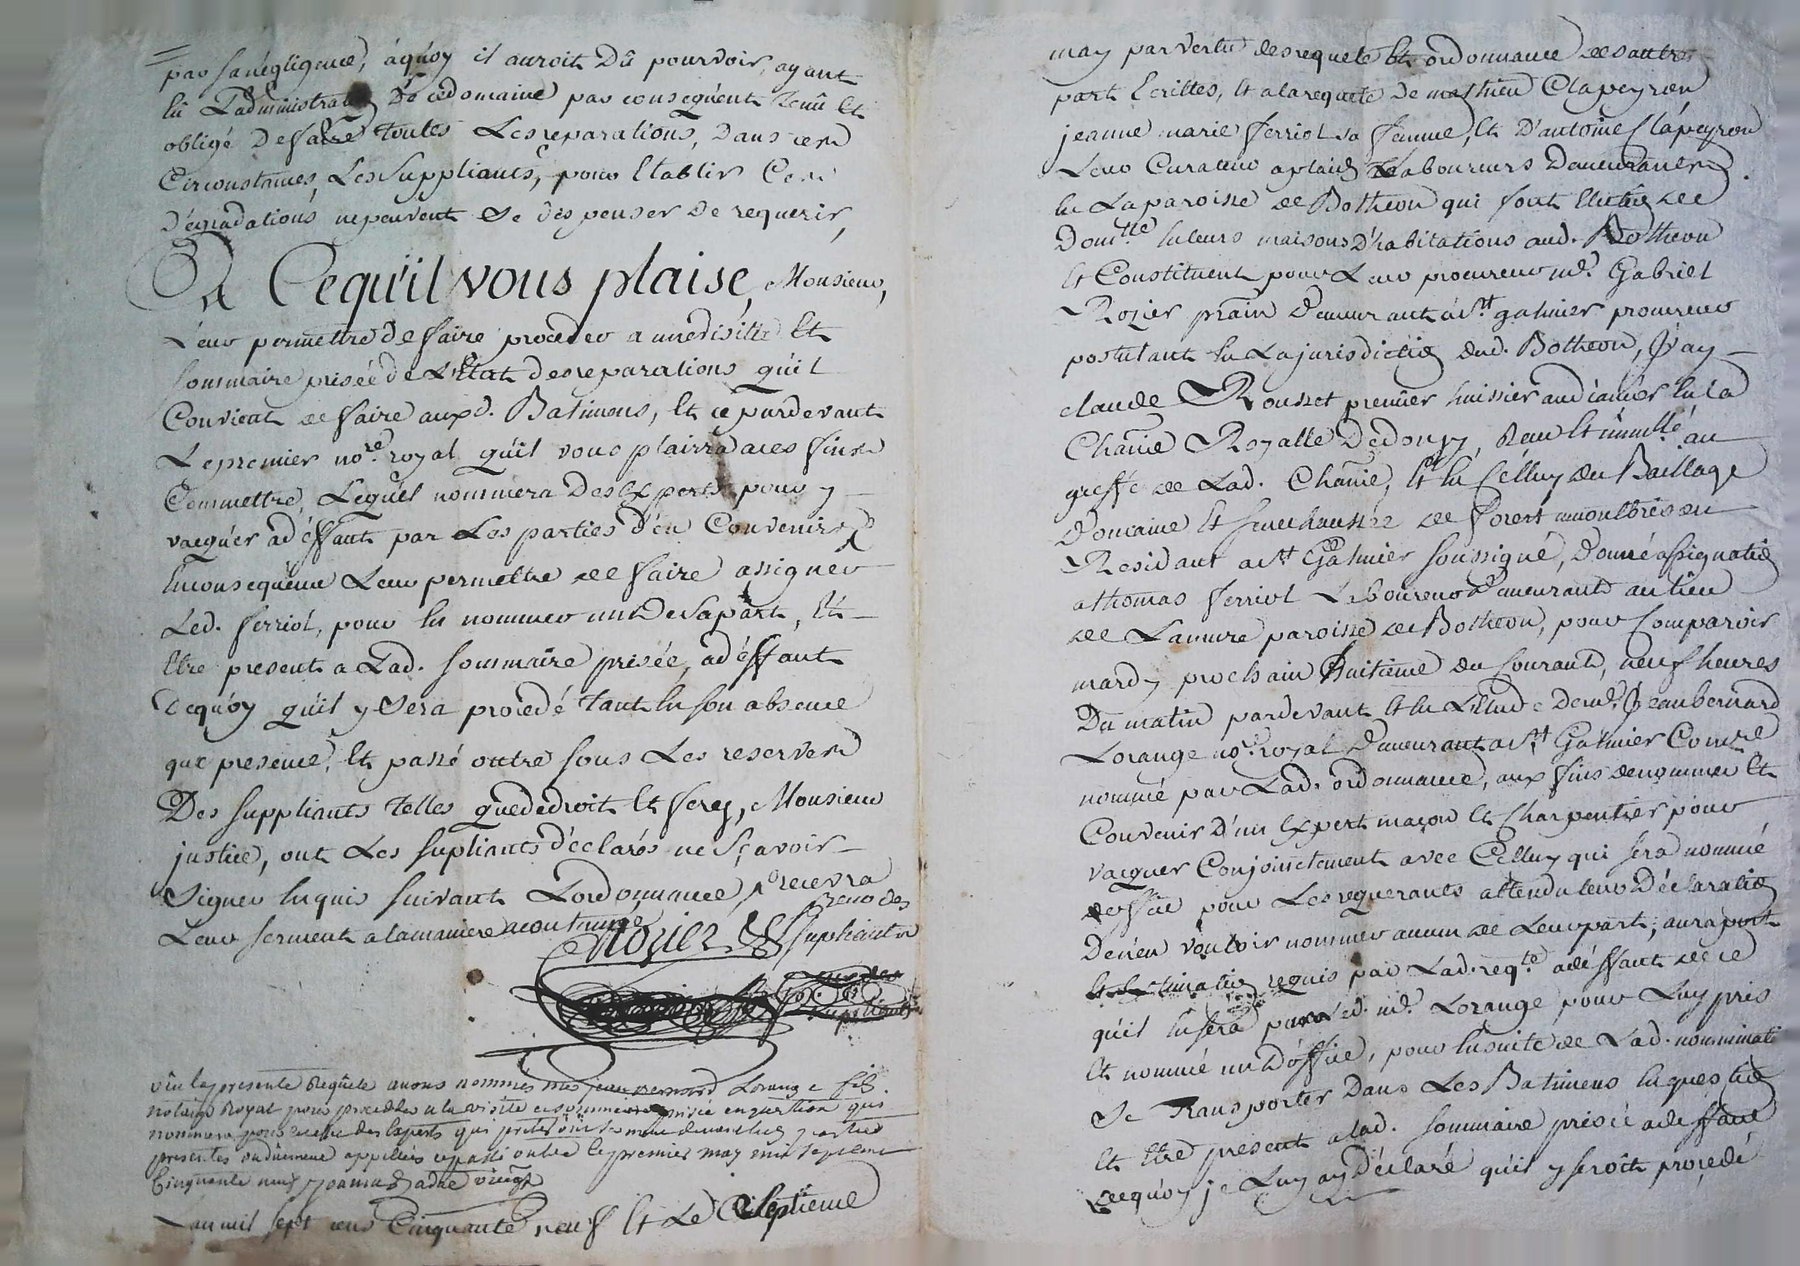 par sa negligence, aquoy il auroit Dû pourvoir, ayant
lû L'administration De cedomaine par consequent tenû et
obligé De faire toutes Les reparations, Dans ces
Circonstances, Les Suppliants, pour Etablir Ces
Dégradations nepeuvent se dispenser De requerir,
A Cequ'il vous plaise, Monsieur,
Leur permettre De faire proceder a unevisitte Et
sommaire prisée De L'Etat des reparations qu'il
Convient de faire auxd. Batimens, Et ce pardevant
Le premier no.re royal qu'il vous plairra aces fins
Commettre, Lequel nommera Des Experts pour y
vacquer adéffaut par Les parties D'en Convenir,
En consequence Leur permettre de faire assigner
Led. ferriol, pour En nommer un De sa part, Et
Etre present a Lad. sommaire prisée, adéffaut
Dequoy qu'il y sera procedé tant En son absence
que presence, Et passé outtre sous Les reserves
Des suppliants telles quede droit Et ferez, Monsieur
justice, ont Les supliants déclarés ne sçavoir
signer Enquis suivant L'ordonnance,
Leur serment a lamaniere acoutumée
Rozier
supliants
vû la presente Requête avons nommés me jean bernard Lorange fils.
notaire Royal pour proceder a la visite et sommaire prisée en question qui
nommera pour ce faire des experts qui preteront serment
presentes ou dûement appellées et passé outre le premier may mil sept cent
Cinquante neuf
Lan mil sept cens Cinquante neuf Et Le Septieme
may par vertu des requete Et ordonnance des autres
part Ecrittes, Et ala requete De mathieu Clapeyron
jeanne marie ferriol sa femme, Et D'antoine Clapeyron
Leur Curateur Laboureurs Demeurants
En La paroisse de Botheon qui font Election de
Dom.lle En leurs maisons D'habitations aud. Botheon
Et Constituent pour Leur procureur me. Gabriel
Rozier Demeurant a st galmier procureur
postulant En La jurisdiction dud. Botheon, J'ay
claude Rousset premier huissier audiancier En la
Royalle Dedonzy, Receu Et immatr.lé au
greffe de Lad. Et En Celluy du Baillage
Domaine Et senechaussée de forest a montbrison
Residant a st Galmier soussigné, donné assignation
a thomas ferriol Laboureur demeurant au lieu
de Lamure paroisse de Botheon, pour Comparoir
mardy prochain huitieme du Courant, neuf heures
Du matin pardevant Et En L'Etude de me. Jean bernard
Lorange no.re royal demeurant a st Galmier Com.re
nommé par Lad. ordonnance, aux fins de nommer Et
Convenir D'un Expert maçon Et Charpentier pour
vacquer Conjoinctement avec Celluy qui sera nommé
doffice pour Les requerants attendu leur Déclaration
De n'en vouloir nommer aucun de Leur part, au raport
Et Estimation requis par Lad. req.te adéffaut de ce
qu'il En sera par led. me. Lorange pour Luy pris
Et nommé un D'office, pour Ensuite de Lad. nomination
se transporter Dans Les Batimens En question
Et Etre present a lad. sommaire prisée adeffaut
dequoy je Luy ay déclaré qu'il y seroit procedé